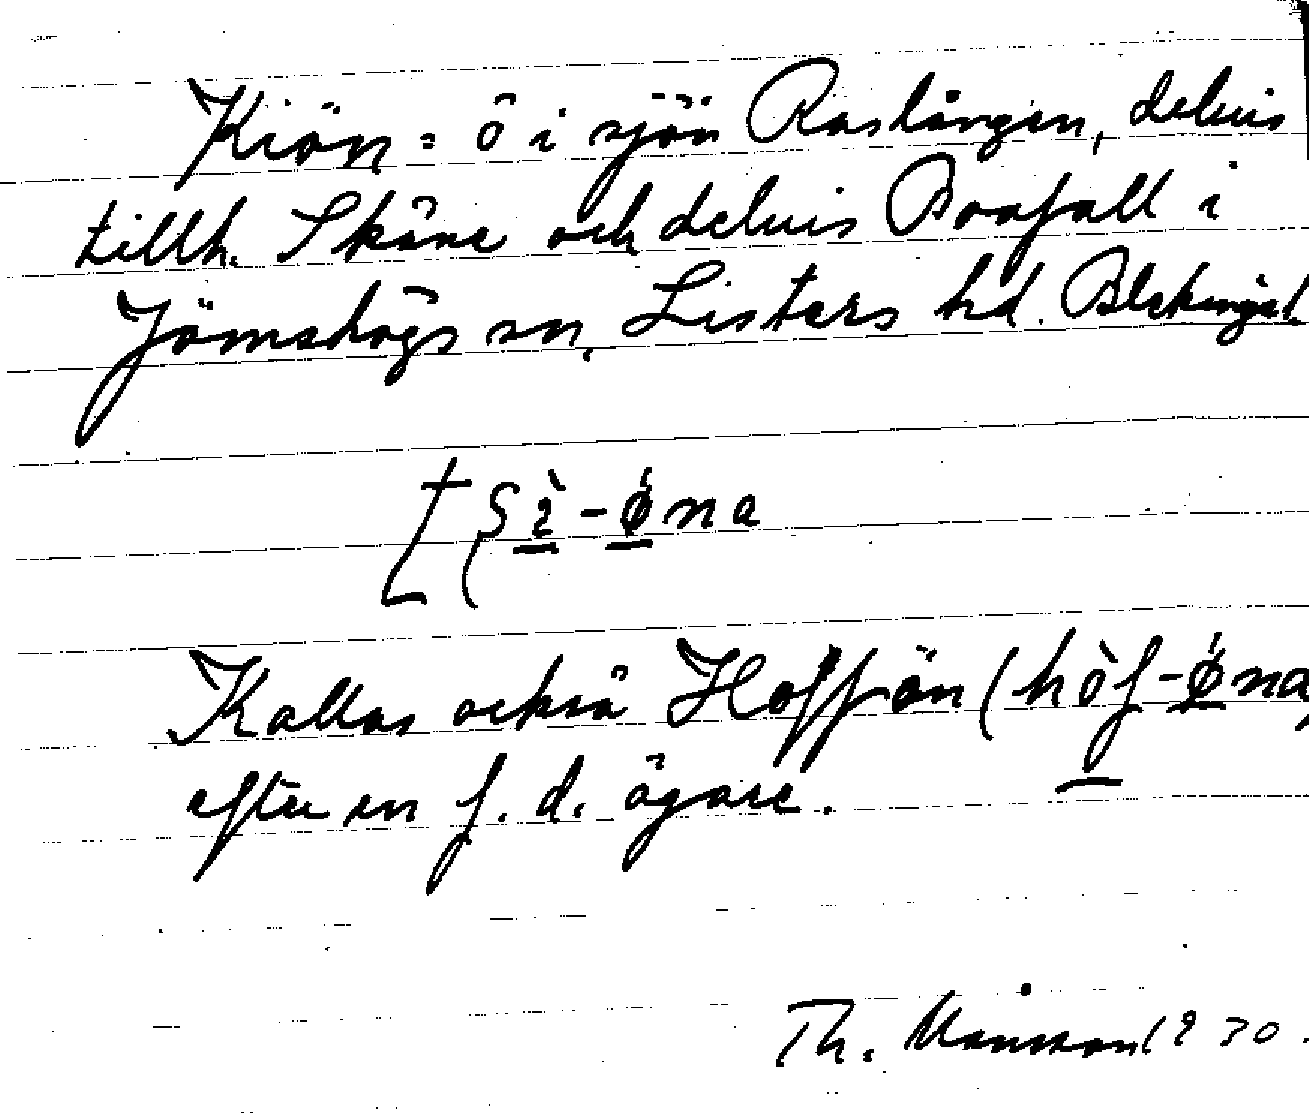 Kiön = ö i sjön Raslången, delvis
tillh. Skåne och delvis Boafall i
Jämshögs sn, Listers hd. Blekinge l.
[tʃì-ǿna
Kallas också Hoffön (hòf-ǿna)
efter en f. d. ägare.
Th. Månsson 1930.